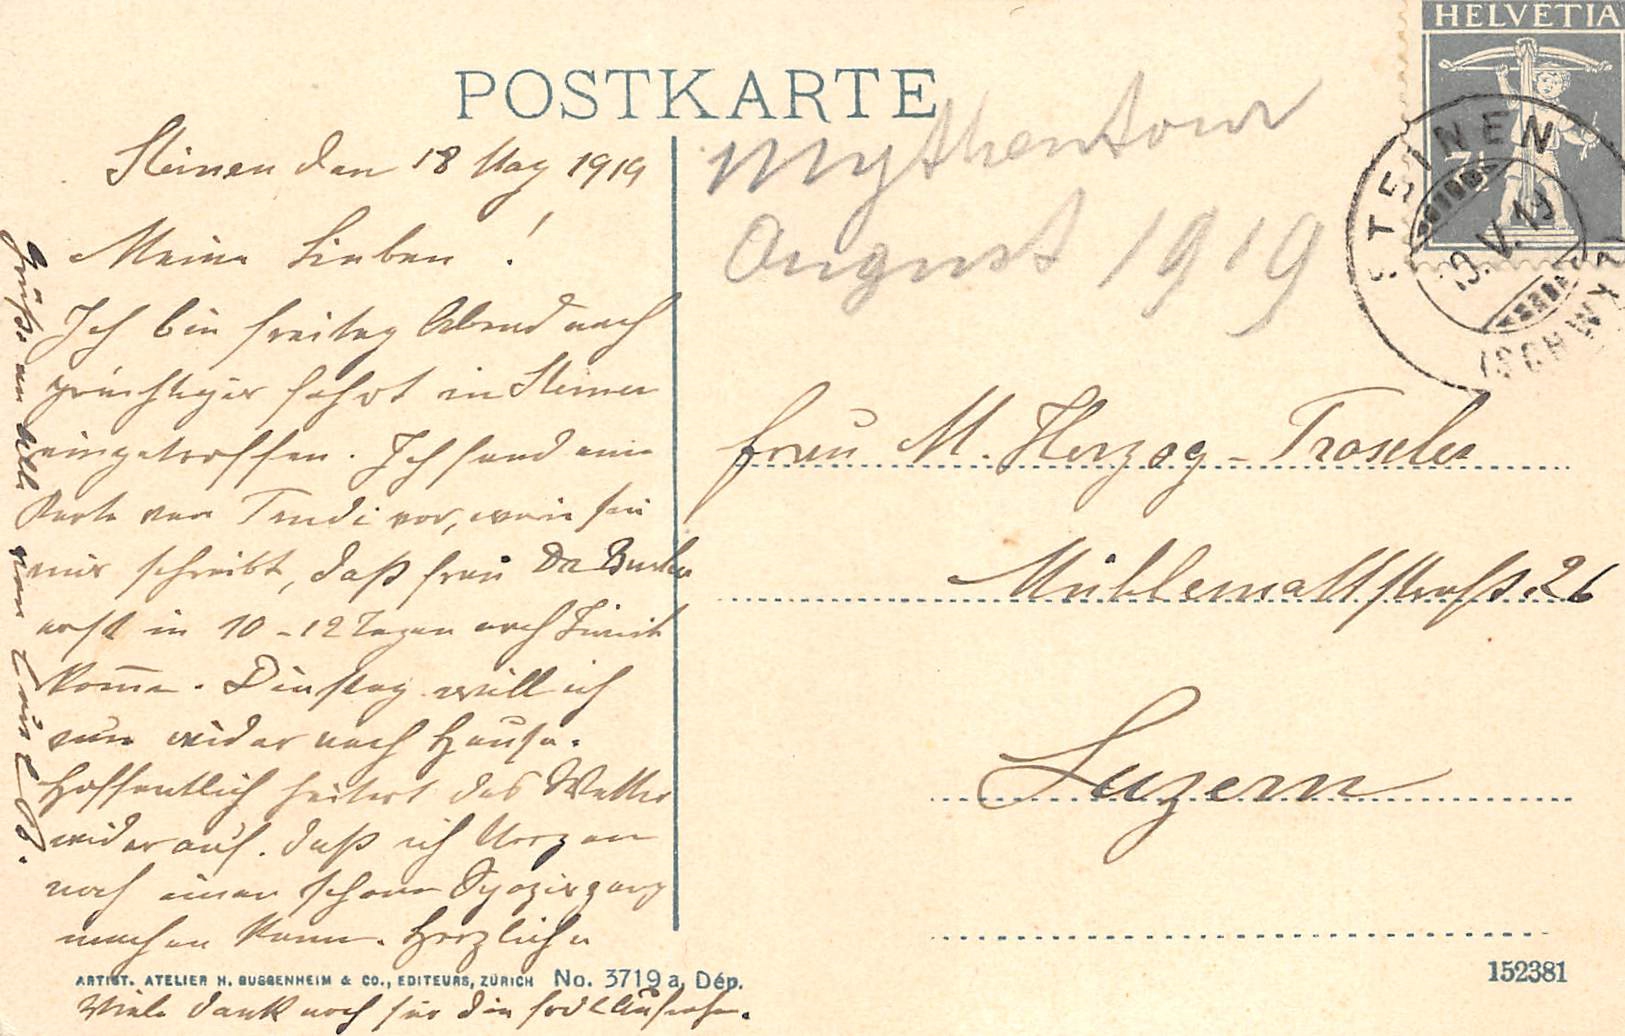 POSTKARTE
HELVETIA
7½
STEINEN
19.V.19
(SCHWYZ)
Mythentour
August 1919
Steinen den 18 May 1919
Meine Lieben!
Ich bin freitag Abend nach
prächtiger fahrt in Steinen
eingetroffen. Ich fand eine
Karte von Trudi vor, worin sie
mir schreibt, daß frau Dr
erst in 10-12 Tagen nach
komme. Dinstag will ich
nun wider nach Hause.
Hoffentlich heitert das Wetter
wider auf. daß ich Morgen
noch einen schönen Spaziergang
machen kann. Herzliche
Grüße an alle von
Viele Dank noch für die Aufnahme.
Frau M. Herzog-Troxler
Mühlemattstraße 26
Luzern
ARTIST. ATELIER H. GUGGENHEIM & CO., EDITEURS, ZÜRICH No. 3719 a, Dép.
152381